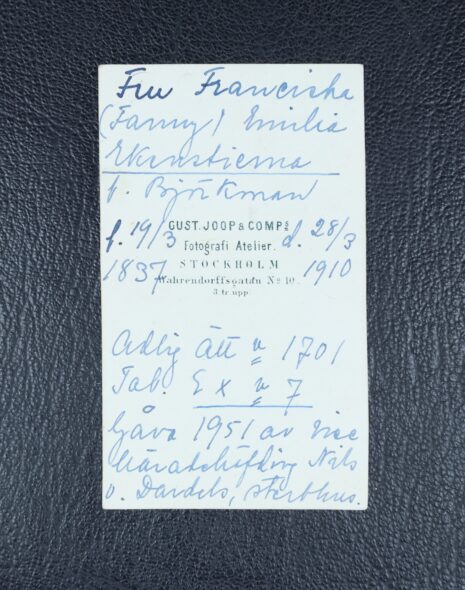 Fru Franciska
(Fanny) Emilia
Ekenstierna
f. Björkman
GUST. JOOP & COMPS
f. 19/3 Fotografi Atelier. d. 28/3
STOCKHOLM
1837 Wahrendorffsgatan No 10. 1910
3 tr. upp
Adlig Ätt n 1701
Tab. E X n 7
Gåva 1951 av vice
häradshöfding Nils
v. Dardels, sterbhus.